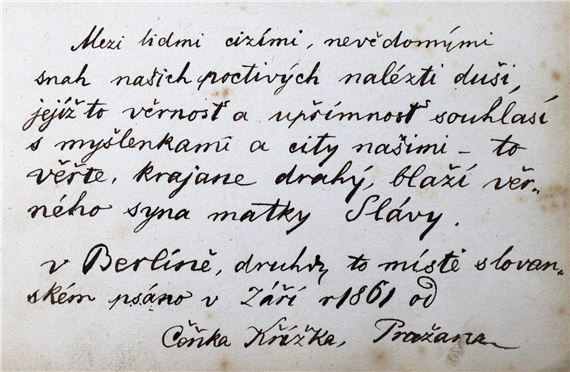 Mezi lidmi cizími, nevědomými
snah našich poctivých nalézti duši,
jejíž to věrnosť a upřímnosť souhlasí
s myšlenkami a city našimi – to
věřte, krajane drahý, blaží věr-
ného syna matky Slávy.
v Berlíně, druhdy to místě slovan-
ském psáno v Září r 1861 od
Čeňka Křížka, Pražana